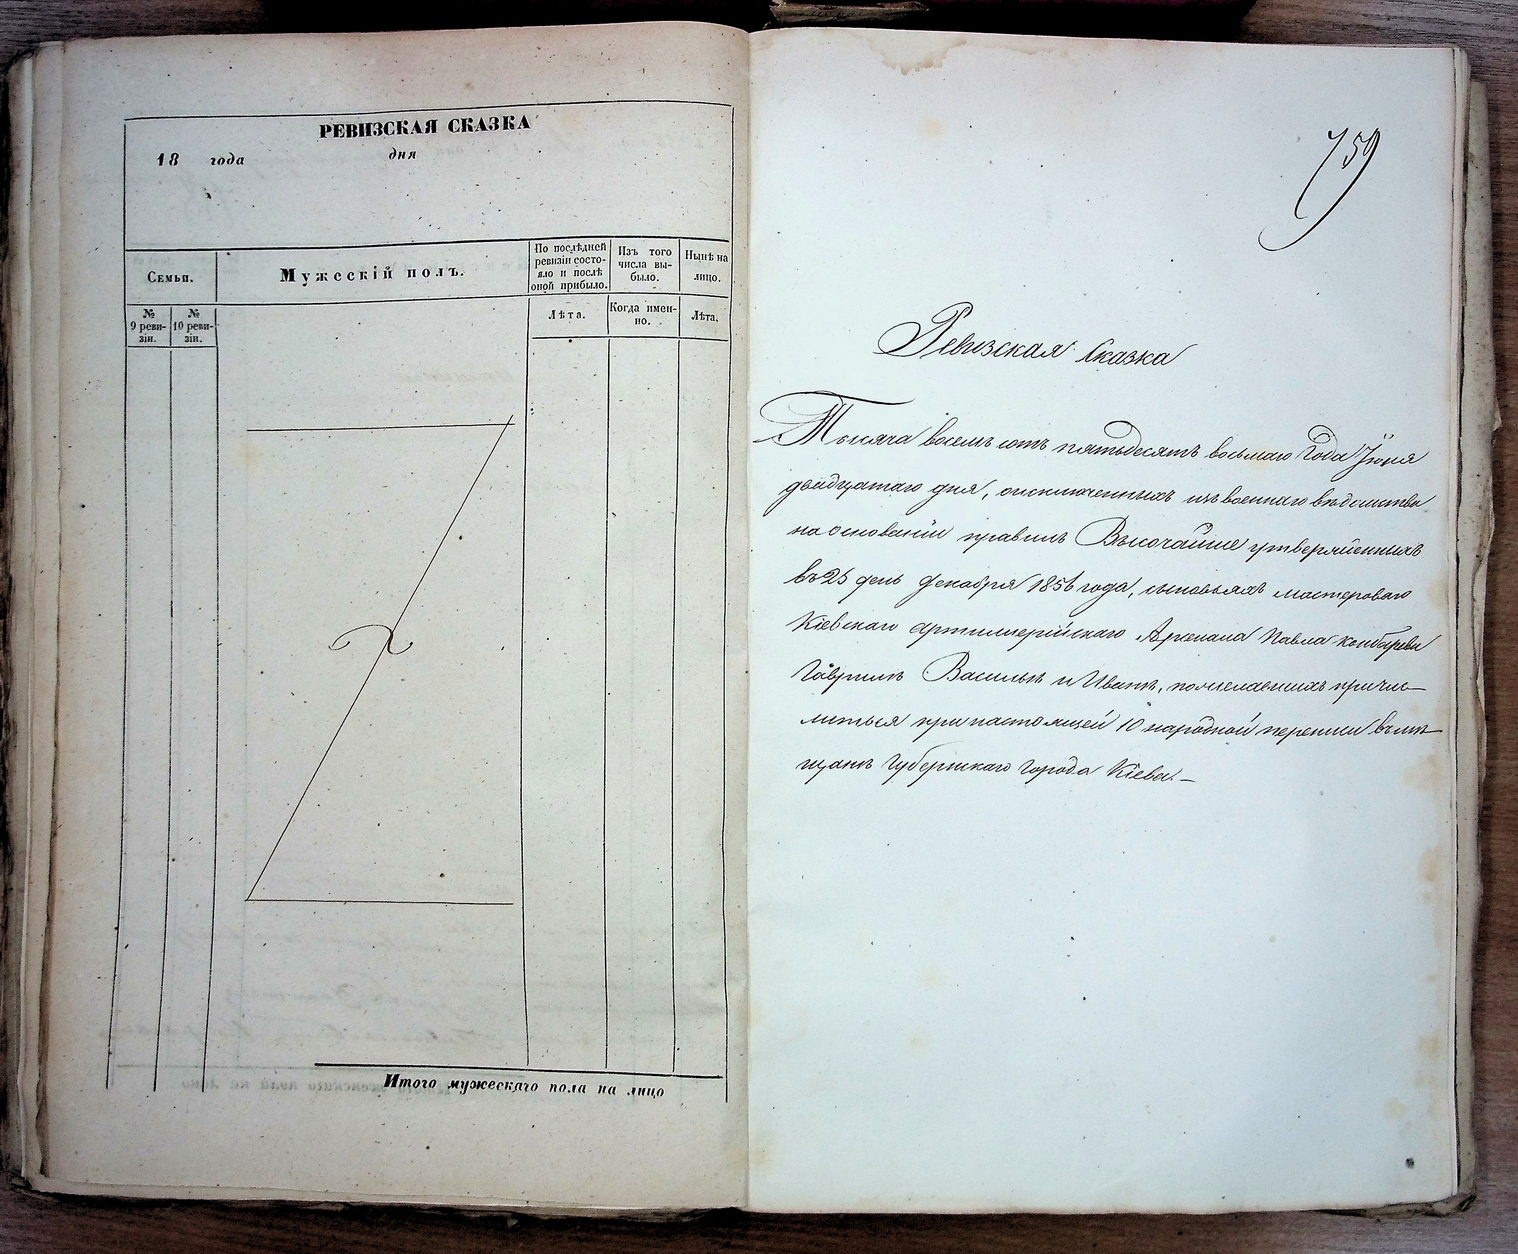 РЕВИЗСКАЯ СКАЗКА
18 года дня
Семьи.
Мужескій полъ.
По послѣдней
ревизіи состо-
яло и послѣ
оной прибыло.
Изъ того
числа вы-
было.
Нынѣ на
лицо.
№
9 реви-
зіи.
№
10 реви-
зіи.
Лѣта.
Когда имен-
но.
Лѣта.
Итого мужескаго пола на лицо
759
Ревизская Сказка
Тысяча восемь сотъ пятьдесятъ восьмаго Года Іюня
двадцатаго дня, о исключенныхъ изъ военнаго вѣдомства
на основаніи правилъ Высочайше утвержденныхъ
въ 25 день декабря 1856 года, сыновьяхъ мастероваго
Кіевскаго артиллерійскаго Арсенала Павла
Гаврилѣ Васильѣ и Иванѣ, пожелавшихъ причис-
литься при настоящей 10 народной переписи въ мѣ-
щане Губернскаго Города Кіева.–